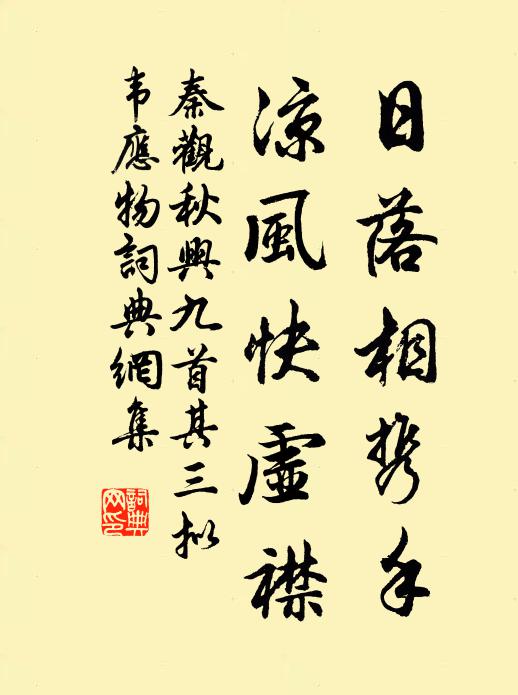 日落相携手
凉風快虛襟
秦觀秋興九首其三拟
韦應物詞典網集
詞典网印